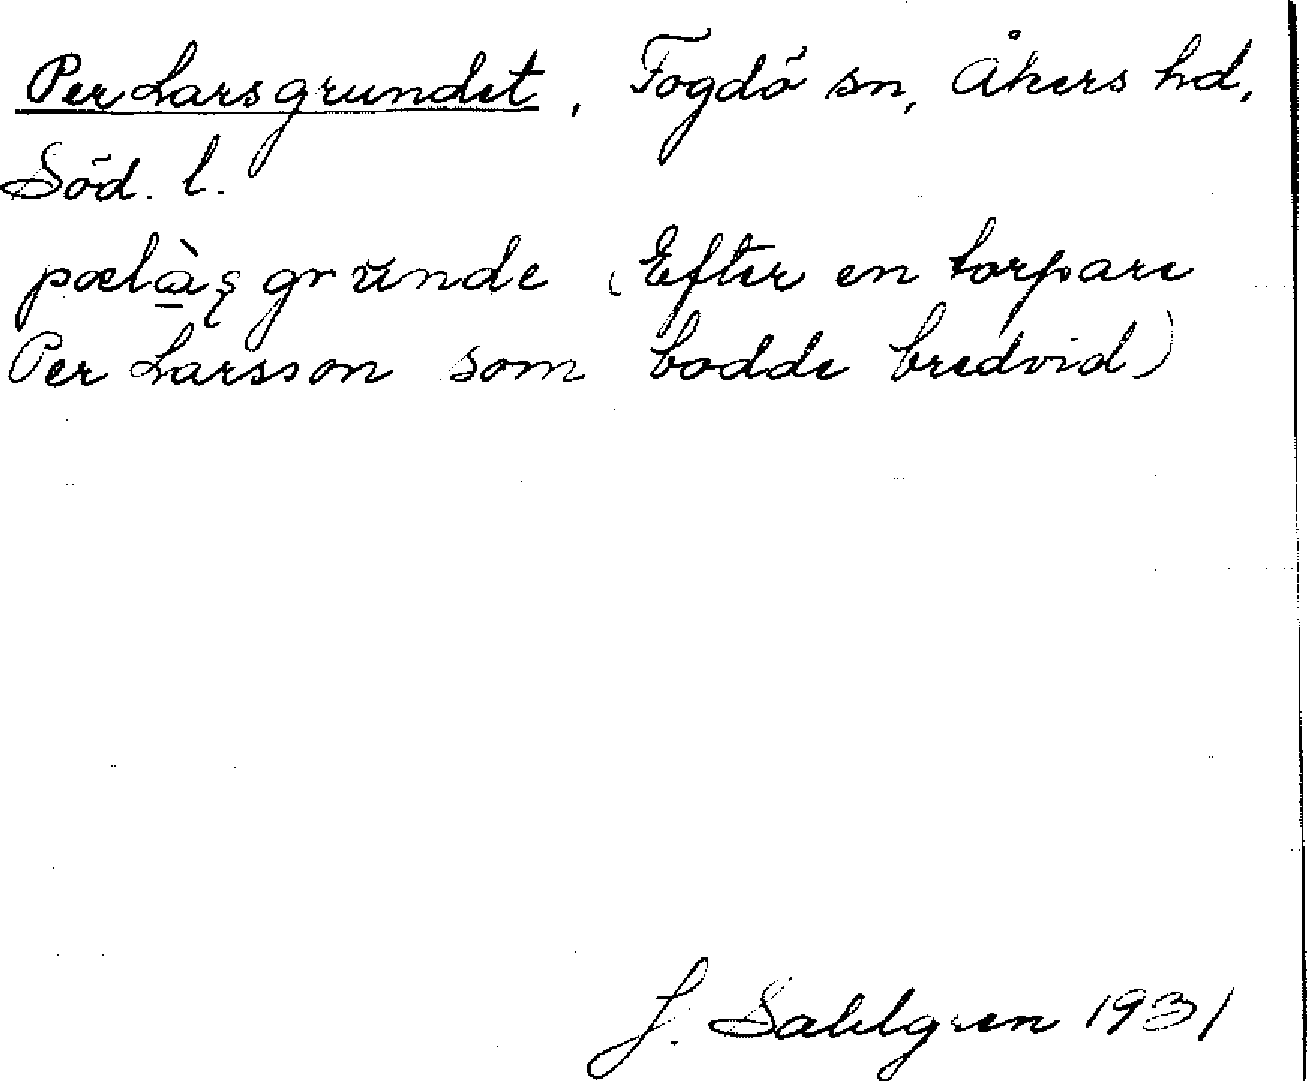 Per Larsgrundet, Fogdö sn, Åkers hd,
Söd. l.
pælàs̨ grŭnde (Efter en torpare
Per Larsson som bodde bredvid)
J. Sahlgren 1931